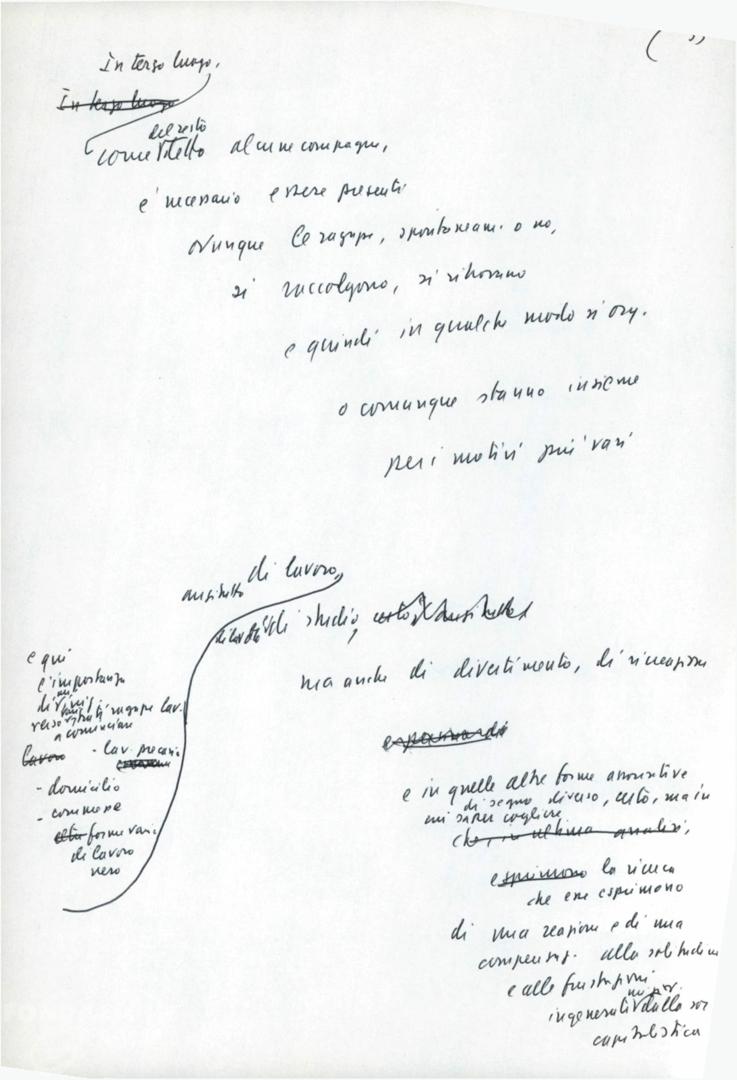 In terzo luogo,
In terzo luogo
del resto
come detto alcune compagne,
e' necessario essere presenti
ovunque le ragazze, spontaneam. o no,
si raccolgono, si ritrovano
e quindi in qualche modo si org.
o comunque stanno insieme
per i motivi più vari
anzitutto di lavoro,
di studio,
ma anche di divertimento, di ricreazione
e in quelle altre forme associative
di segno diverso, certo, ma in
cui saper cogliere
che, in ultima analisi,
esprimono la ricerca
che esse esprimono
di una reazione e di una
compensaz. alla solitudine
e alle frustrazioni
ingenerati dalla soc
capitalistica
e qui
l'importanza
verso ragazze lav.
a cominciare
lavoro - lav. precario
- domicilio
- commesse
altre forme varie
di lavoro
nero